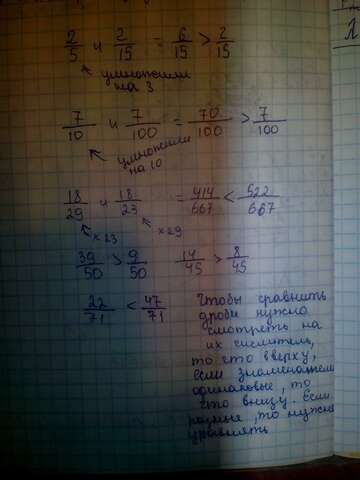 2/5 и 2/15 = 6/15 > 2/15
умножили
на 3
7/10 и 7/100 = 70/100 > 7/100
умножили
на 10
18/29 и 18/23 = 414/667 < 522/667
×23 ×29
39/50 > 9/50 14/45 > 8/45
22/71 < 47/71
Чтобы сравнить
дроби нужно
смотреть на
их числители,
то что вверху,
если знаменатели
одинаковые, то
что внизу. Если
разные, то нужно
уровнять